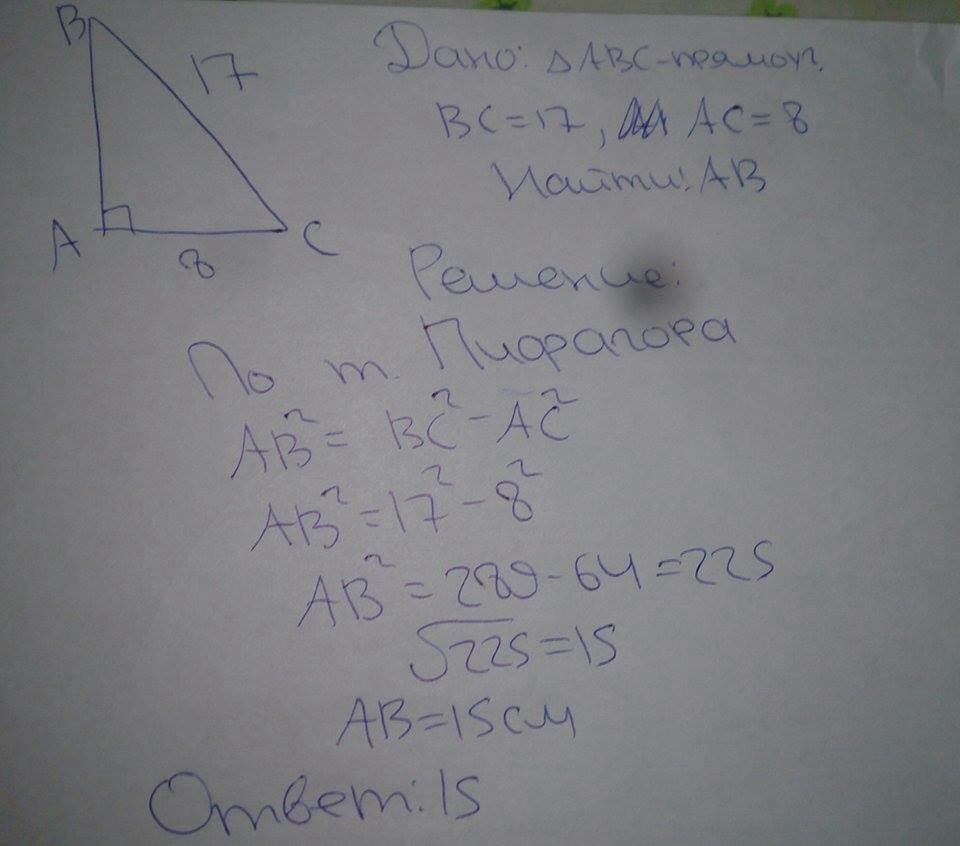 B
17
A
8
C
Дано: △ABC-прямоуг.
BC=17, AC=8
Найти: AB
Решение:
По т. Пифагора
AB²= BC²-AC²
AB²=17²-8²
AB²=289-64=225
√225=15
AB=15см
Ответ:15